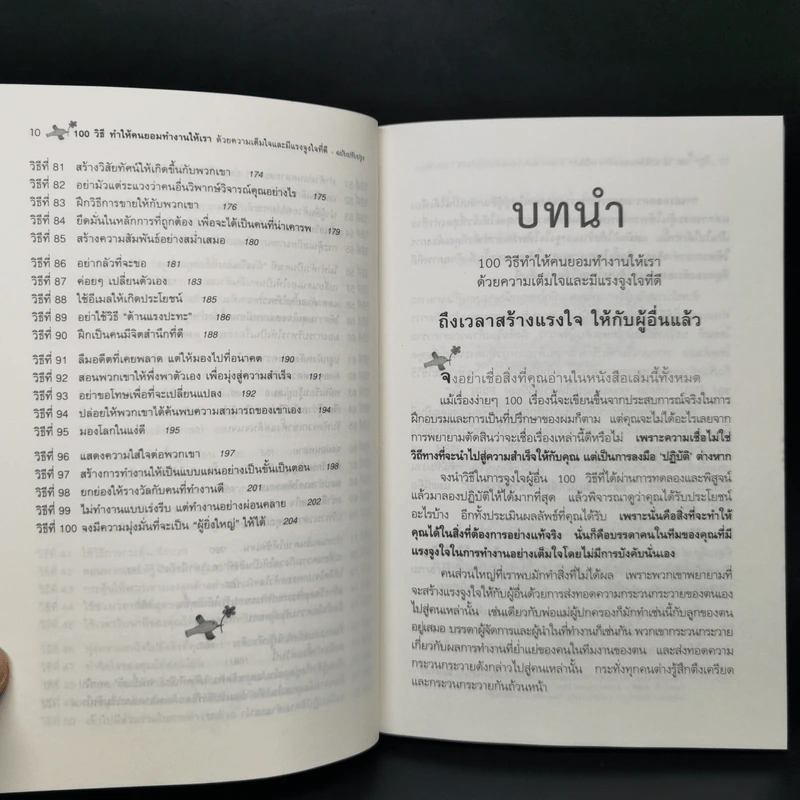 10 100 วิธี ทำให้คนยอมทำงานให้เรา ด้วยความเต็มใจและมีแรงจูงใจที่ดี - ฉบับปรับปรุง
วิธีที่ 81 สร้างวิสัยทัศน์ให้เกิดขึ้นกับพวกเขา 174
วิธีที่ 82 อย่ามัวแต่ระแวงว่าคนอื่นวิพากษ์วิจารณ์คุณอย่างไร 175
วิธีที่ 83 ฝึกวิธีการขายให้กับพวกเขา 176
วิธีที่ 84 ยึดมั่นในหลักการที่ถูกต้อง เพื่อจะได้เป็นคนที่น่าเคารพ 179
วิธีที่ 85 สร้างความสัมพันธ์อย่างสม่ำเสมอ 180
วิธีที่ 86 อย่ากลัวที่จะขอ 181
วิธีที่ 87 ค่อยๆ เปลี่ยนตัวเอง 183
วิธีที่ 88 ใช้อีเมลให้เกิดประโยชน์ 185
วิธีที่ 89 อย่าใช้วิธี "ต้านแรงปะทะ" 186
วิธีที่ 90 ฝึกเป็นคนมีจิตสำนึกที่ดี 188
วิธีที่ 91 ลืมอดีตที่เคยพลาด แต่ให้มองไปที่อนาคต 190
วิธีที่ 92 สอนพวกเขาให้พึ่งพาตัวเอง เพื่อมุ่งสู่ความสำเร็จ 191
วิธีที่ 93 อย่าขอโทษเพื่อที่จะเปลี่ยนแปลง 192
วิธีที่ 94 ปล่อยให้พวกเขาได้ค้นพบความสามารถของเขาเอง 194
วิธีที่ 95 มองโลกในแง่ดี 195
วิธีที่ 96 แสดงความใส่ใจต่อพวกเขา 197
วิธีที่ 97 สร้างการทำงานให้เป็นแบบแผนอย่างเป็นขั้นเป็นตอน 198
วิธีที่ 98 ยกย่องให้รางวัลกับคนที่ทำงานดี 201
วิธีที่ 99 ไม่ทำงานแบบเร่งรีบ แต่ทำงานอย่างผ่อนคลาย 202
วิธีที่ 100 จงมีความมุ่งมั่นที่จะเป็น "ผู้ยิ่งใหญ่" ให้ได้ 204
บทนำ
100 วิธีทำให้คนยอมทำงานให้เรา
ด้วยความเต็มใจและมีแรงจูงใจที่ดี
ถึงเวลาสร้างแรงใจ ให้กับผู้อื่นแล้ว
จงอย่าเชื่อสิ่งที่คุณอ่านในหนังสือเล่มนี้ทั้งหมด
แม้เรื่องง่ายๆ 100 เรื่องนี้จะเขียนขึ้นจากประสบการณ์จริงในการ
ฝึกอบรมและการเป็นที่ปรึกษาของผมก็ตาม แต่คุณจะไม่ได้อะไรเลยจาก
การพยายามตัดสินว่าจะเชื่อเรื่องเหล่านี้ดีหรือไม่ เพราะความเชื่อไม่ใช่
วิถีทางที่จะนำไปสู่ความสำเร็จให้กับคุณ แต่เป็นการลงมือ 'ปฏิบัติ' ต่างหาก
จงนำวิธีในการจูงใจผู้อื่น 100 วิธีที่ได้ผ่านการทดลองและพิสูจน์
แล้วมาลองปฏิบัติให้ได้มากที่สุด แล้วพิจารณาดูว่าคุณได้รับประโยชน์
อะไรบ้าง อีกทั้งประเมินผลลัพธ์ที่คุณได้รับ เพราะนั่นคือสิ่งที่จะทำให้
คุณได้ในสิ่งที่ต้องการอย่างแท้จริง นั่นก็คือบรรดาคนในทีมของคุณที่มี
แรงจูงใจในการทำงานอย่างเต็มใจโดยไม่มีการบังคับนั่นเอง
คนส่วนใหญ่ที่เราพบมักทำสิ่งที่ไม่ได้ผล เพราะพวกเขาพยายามที่
จะสร้างแรงจูงใจให้กับผู้อื่นด้วยการส่งทอดความกระวนกระวายของตนเอง
ไปสู่คนเหล่านั้น เช่นเดียวกับพ่อแม่ผู้ปกครองก็มักทำเช่นนี้กับลูกของตน
อยู่เสมอ บรรดาผู้จัดการและผู้นำในที่ทำงานก็เช่นกัน พวกเขากระวนกระวาย
เกี่ยวกับผลการทำงานที่ย่ำแย่ของคนในทีมงานของตน และส่งทอดความ
กระวนกระวายดังกล่าวไปสู่คนเหล่านั้น กระทั่งทุกคนต่างรู้สึกตึงเครียด
และกระวนกระวายกันถ้วนหน้า